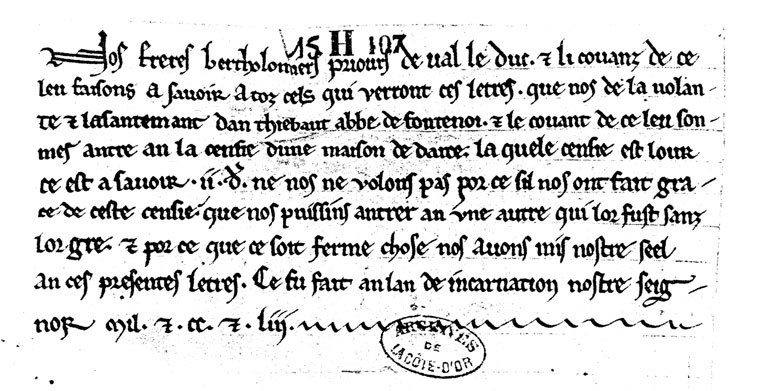 15 H 107
Nos freres bertholomers priours de val le duc. & li covanz de ce
leu faisons a savoir a toz cels qui verront ces letres. que nos de la volan-
te & lasantemant dan thiebaut abbe de fontenoi. & le covant de ce leu son-
mes antre an la censie dune maison de darce. la quele censie est lour
ce est a savoir .ii. d. ne nos ne volons pas por ce sil nos ont fait gra-
ce de ceste censie. que nos puissins antrer an vne autre qui lor fust sanz
lor gre. & por ce que ce soit ferme chose nos avons mis nostre seel
an ces presentes letres. Ce fu fait an lan de incarnation nostre seig-
nor mil. & .cc. & .liii.
ARCHIVES
DE
LA CÔTE-D'OR